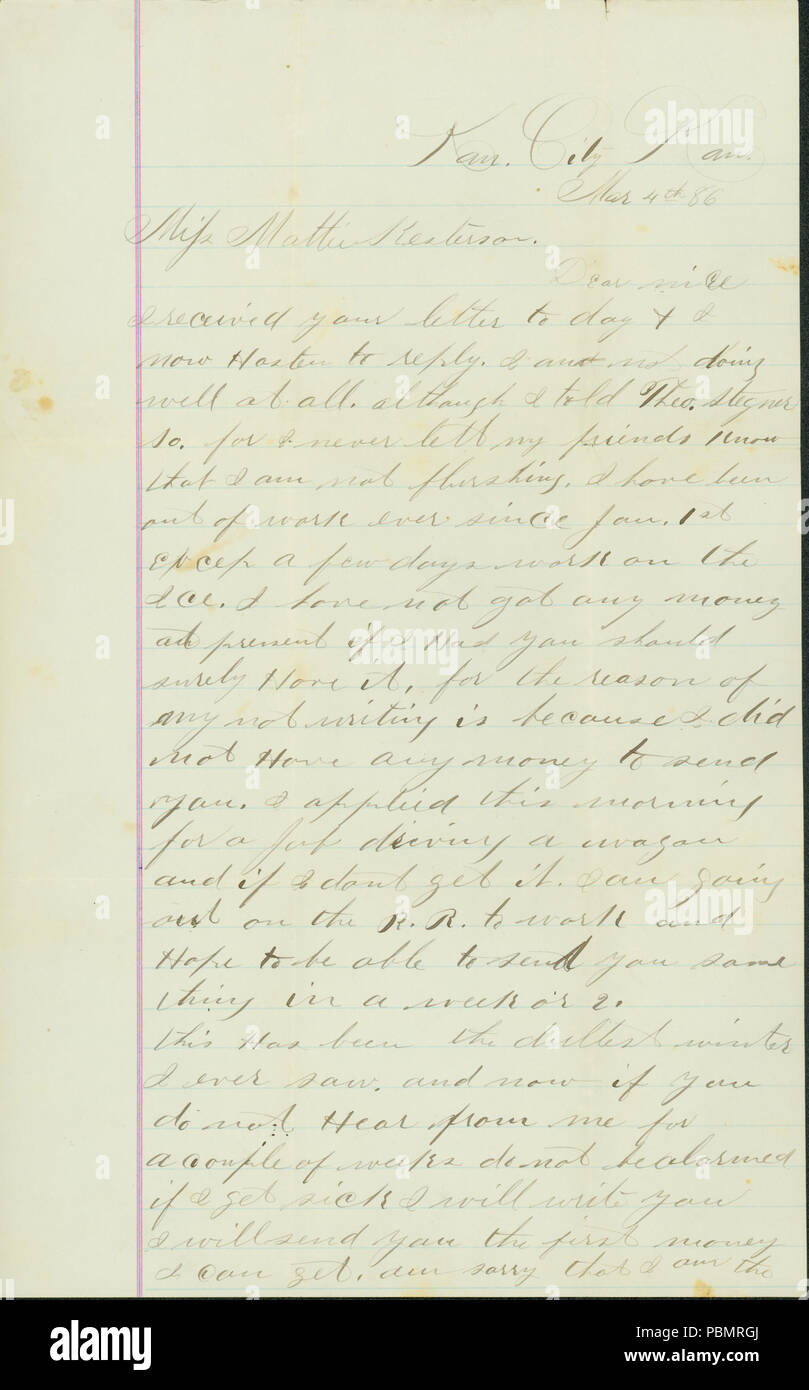 Kan. City Kan.
Mar 4th 86
Miss Mattie Kesterson.
Dear nice
I received your letter to day & I
now Hasten to reply. I am not doing
well at all. although I told Theo. Stegner
so. for I never lett my friends know
that I am not flurshing. I have been
out of work ever since Jan. 1st
excep a few days work on the
Ice. I have not got any money
at present if I Had you should
surely Have it, for the reason of
my not writing is because I did
not Have any money to send
you. I applied this morning
for a job driving a wagon
and if I dont get it. I am going
out on the R. R. to work and
Hope to be able to send you some
thing in a week or 2.
this Has been the dullest winter
I ever saw. and now if you
do not Hear from me for
a couple of weeks do not be alarmed
if I get sick I will write you
I will send you the first money
I can get. am sorry that I am the
alamy
alamy stock photo
PBMRGJ
www.alamy.com